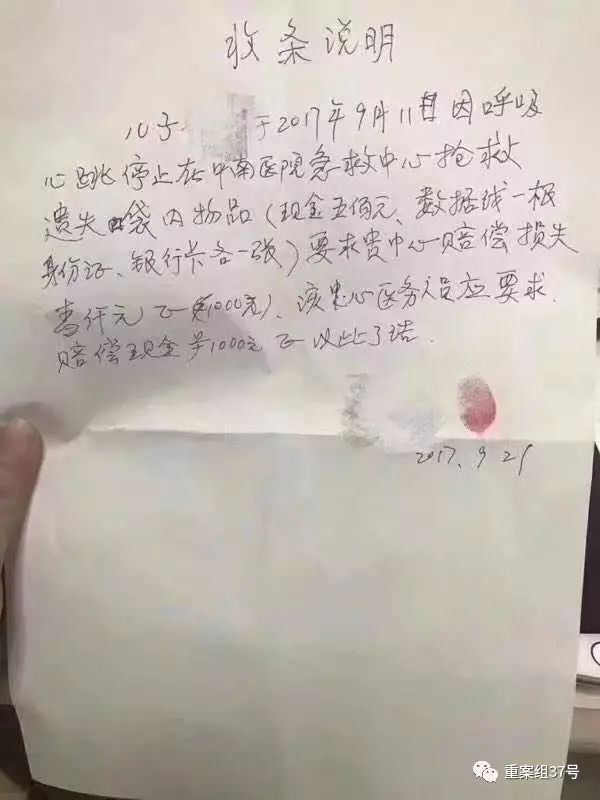 收条说明
儿子 于2017年9月11日因呼吸
心跳停止在中南医院急救中心抢救
遗失 袋内物品(现金五佰元、数据线一根
身份证、银行卡各一张)要求贵中心赔偿损失
壹仟元正(¥1000元)、该中心医务人员应要求.
赔偿现金¥1000元正以此了结.
2017.9.21
重案组37号